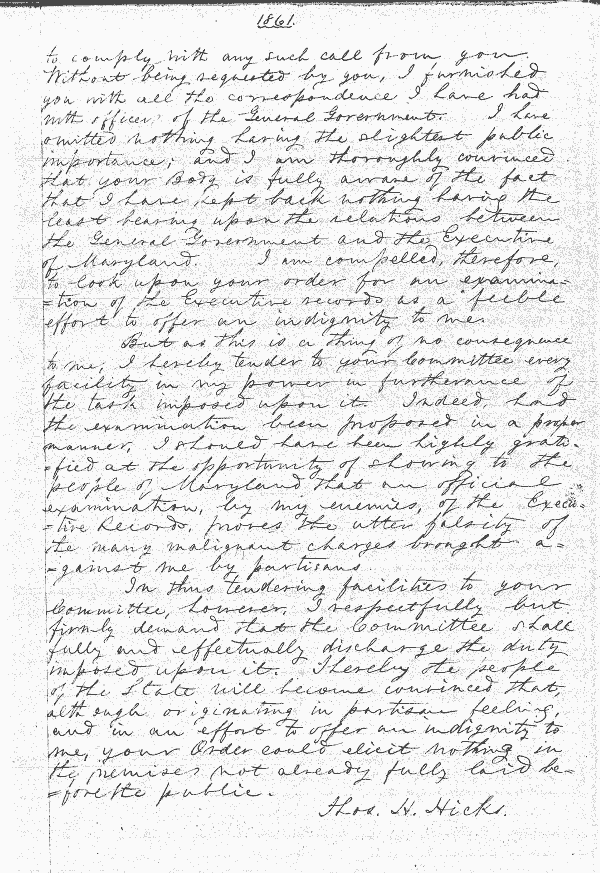 1861.
to comply with any such call from you.
Without being requested by you, I furnished
you with all the correspondence I have had
with officers of the General Government. I have
omitted nothing having the slightest public
importance; and I am thoroughly convinced
that your Body is fully aware of the fact
that I have kept back nothing having the
least bearing upon the relations between
the General Government and the Executive
of Maryland. I am compelled, therefore,
to look upon your order for an examina=
=tion of the Executive records as a feeble
effort to offer an indignity to me.
But as this is a thing of no consequence
to me, I hereby tender to your Committee every
facility in my power in furtherance of
the task imposed upon it. Indeed, had
the examination been proposed in a proper
manner, I should have been highly grati-
=fied at the opportunity of showing to the
people of Maryland that an official
examination, by my enemies, of the Execu-
=tive Records, proves the utter falsity of
the many malignant charges brought a=
=gainst me by partisans.
In thus tendering facilities to your
Committee, however, I respectfully but
firmly demand that the Committee shall
fully and effectually discharge the duty
imposed upon it. Thereby the people
of the State will become convinced that,
although originating in partisan feeling,
and in an effort to offer an indignity to
me, your Order could elicit nothing in
the premises not already fully laid be=
=fore the public.
Thos. H. Hicks.